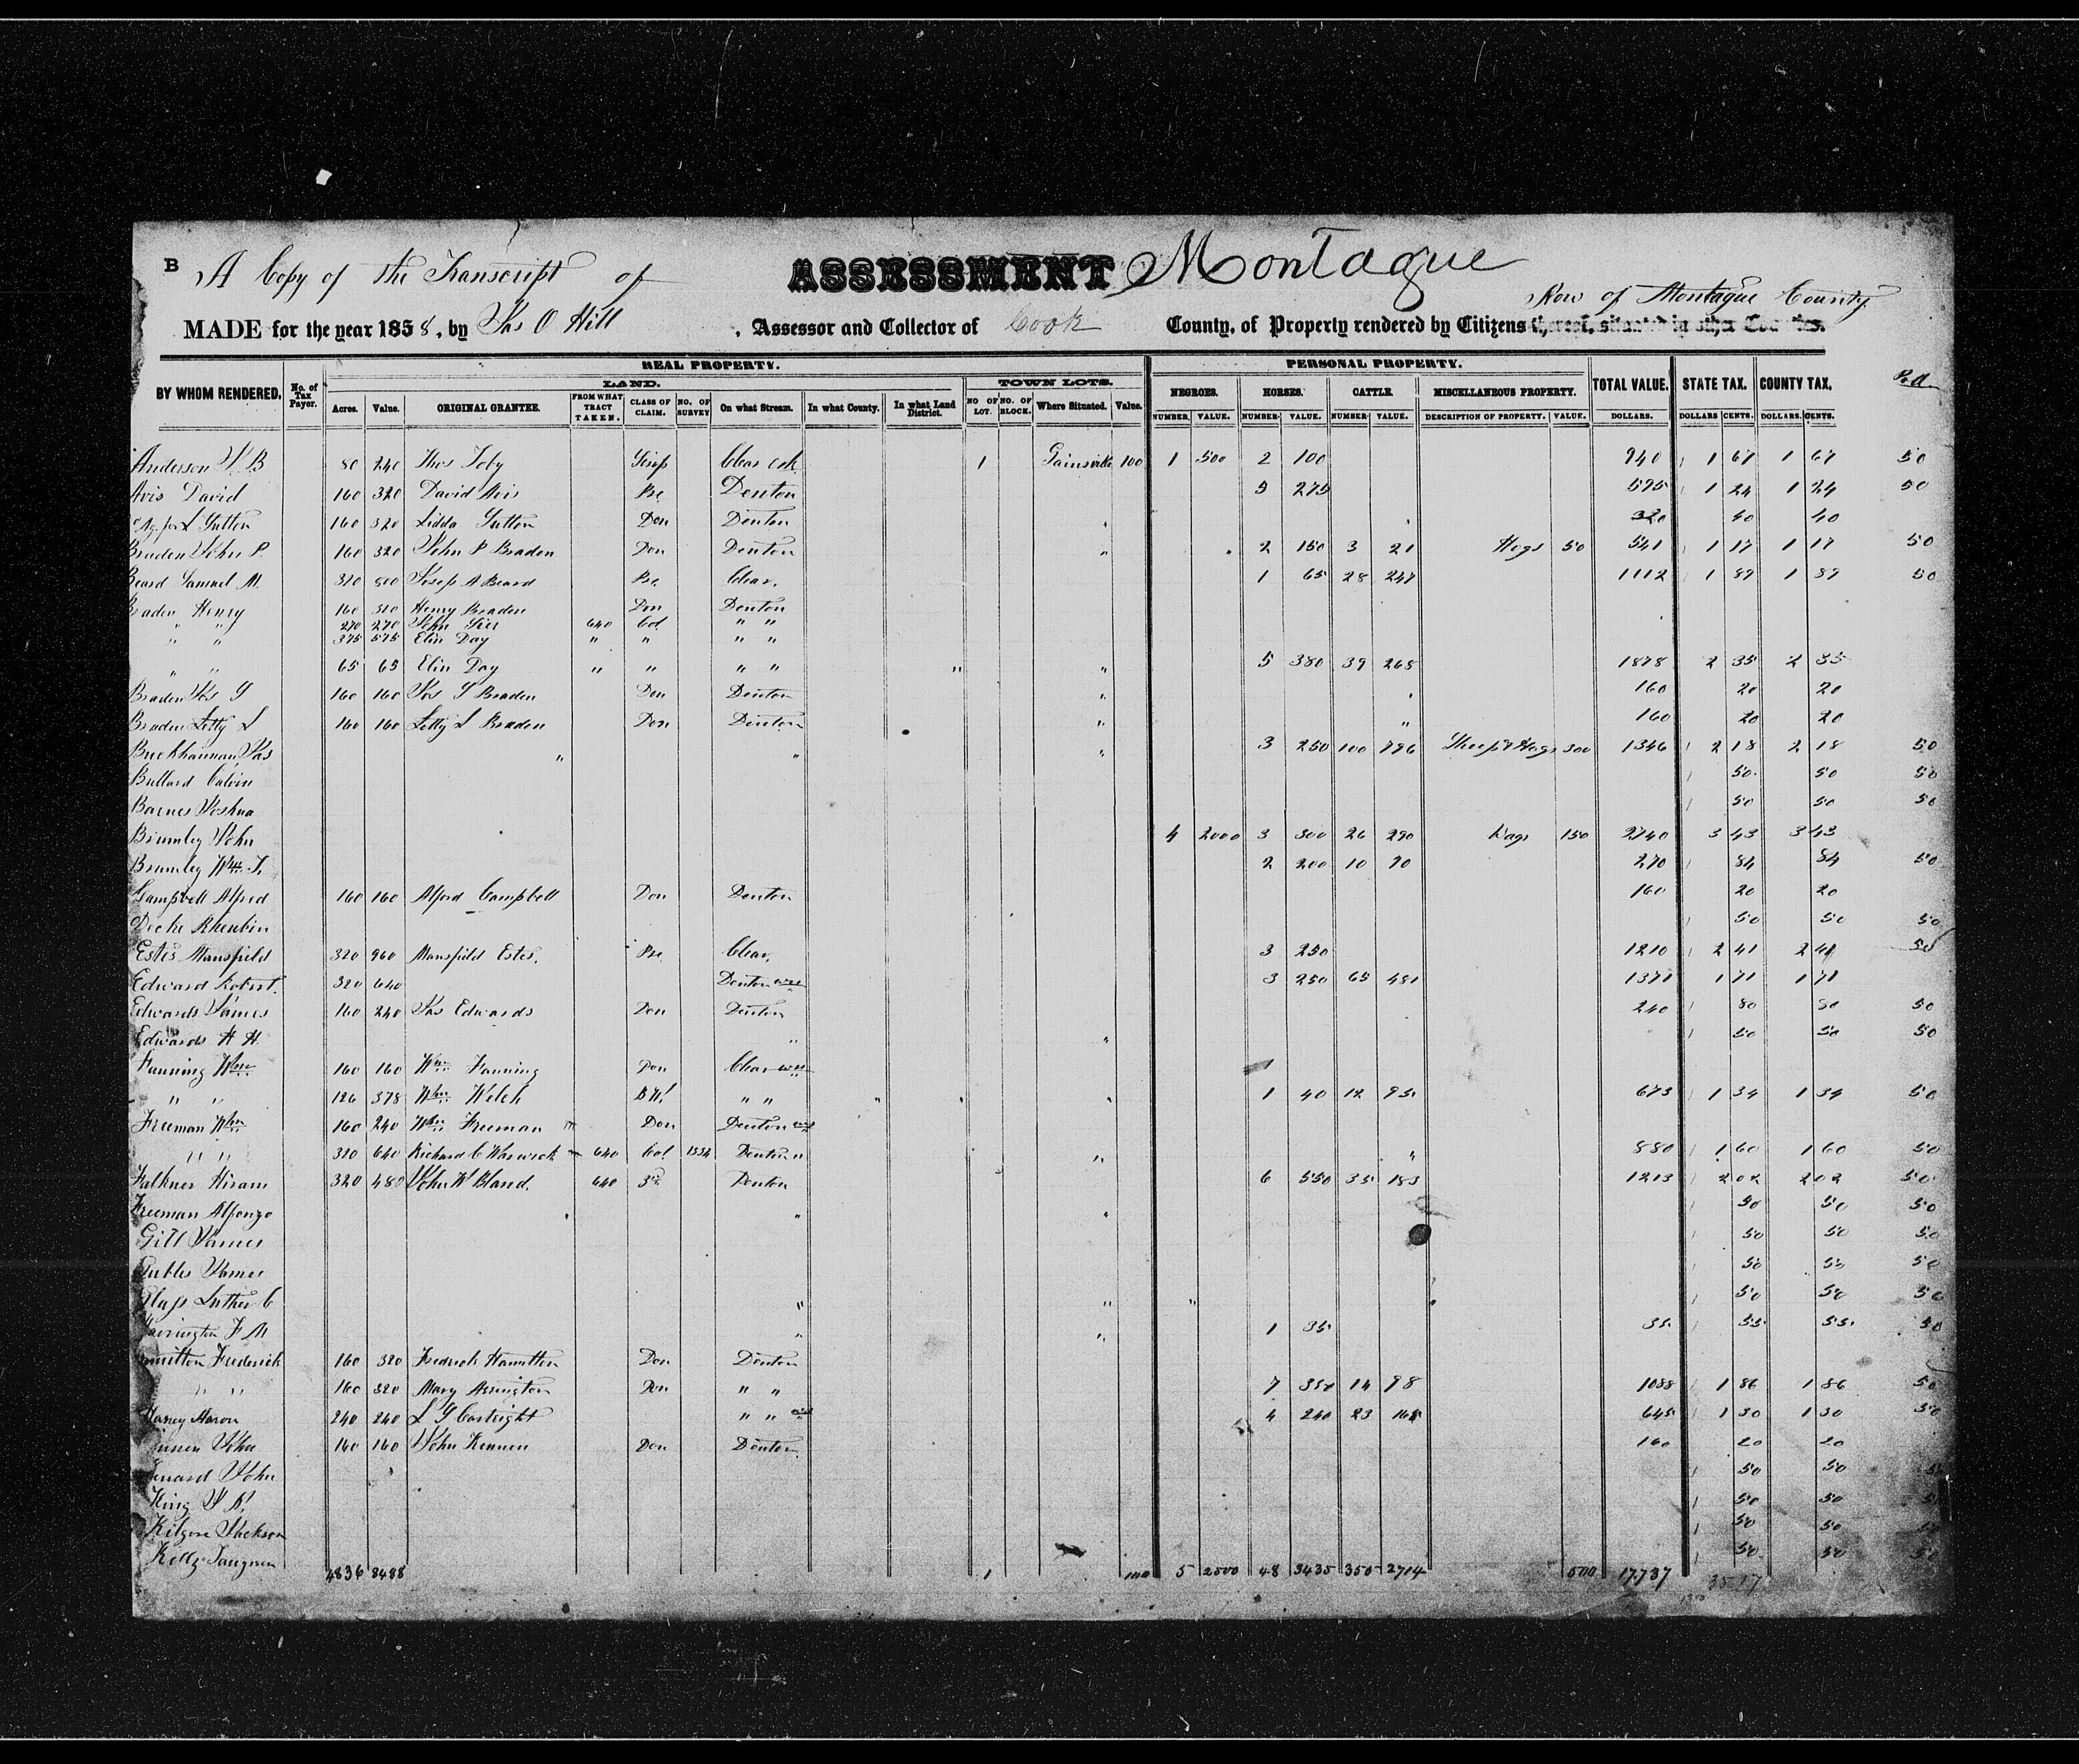 B A Copy of the Transcript of ASSESSMENT Montague
Now of Montague County
MADE for the year 1858, by Jas O Hill, Assessor and Collector of Cook County, of Property rendered by Citizens thereof, situated in other Counties.
REAL PROPERTY. PERSONAL PROPERTY.
LAND. TOWN LOTS.
BY WHOM RENDERED. No. of Tax Payer. Acres. Value. ORIGINAL GRANTEE. FROM WHAT TRACT TAKEN. CLASS OF CLAIM. NO. OF SURVEY On what Stream. In what County. In what Land District. NO OF LOT. NO. OF BLOCK. Where Situated. Value. NEGROES. NUMBER. VALUE. HORSES. NUMBER. VALUE. CATTLE. NUMBER. VALUE. MISCELLANEOUS PROPERTY. DESCRIPTION OF PROPERTY. VALUE. TOTAL VALUE. DOLLARS. STATE TAX. DOLLARS CENTS. COUNTY TAX. DOLLARS. CENTS.
Anderson J. B 80 240 Thos Toby Clear Crk 1 Gainsville 100 1 500 2 100 940 1 67 1 67 50
Avis David 160 320 David Avis Pre Denton 5 275 595 1 24 1 24 50
" Ag. for L Sutton 160 320 Lidda Sutton Don Denton 320 40 40
Braden John P. 160 320 John P Braden Don Denton 2 150 3 21 Hogs 50 541 1 17 1 17 50
Beard Samuel M. 320 800 Joseph A Beard Pre Clear, 1 65 28 247 1112 1 89 1 89 50
Braden Henry 160 320 Henry Braden Don Denton
" " 270 270 John 640 Col " "
" " 375 575 Elin Day " " " "
" " 65 65 Elin Day " " " " " " 5 380 39 268 1878 2 35 2 35
Braden Jas G 160 160 Jas G Braden Don Denton 160 20 20
Braden Letty L 160 160 Letty L Braden Don Denton 160 20 20
Buckhannan Jas 3 250 100 796 Sheep & Hogs 300 1346 2 18 2 18 50
Bullard Calvin 50 50 50
Barnes Joshua 50 50 50
Brumley John 4 2000 3 300 26 290 150 2740 3 43 3 43
Brumley Wm T. 2 200 10 70 270 84 84 50
Campbell Alfred 160 160 Alford Campbell Don Denton 160 20 20
50 50 50
Estes Mansfield 320 960 Mansfield Estes. Pre Clear, 3 250 1210 2 41 2 41 50
Edward Robert. 320 640 Denton 3 250 65 481 1371 1 71 1 71
Edwards James 160 240 Jas Edwards Don Denton 240 80 80 50
Edwards H H 50 50 50
Fanning Wm 160 160 Wm Fanning Don Clear
" " 126 378 Wm Welch " " 1 40 12 95 673 1 34 1 34 50
Freeman Wm 160 240 Wm Freeman Don Denton
" " 320 640 Richard C Warwick 640 Col 1334 Denton " 880 1 60 1 60 50
Falkner Hiram 320 480 John W Bland. 640 3rd Denton 6 550 35 183 1213 2 02 2 02 50
Freeman Alfonzo 50 50 50
Gill James 50 50 50
James 50 50 50
Glass Luther C 50 50 50
F M 1 35 35 55 55 50
Hamilton Frederick 160 320 Fredrick Hamilton Don Denton
" " 160 320 Mary Arrington Don " " 7 350 14 98 1088 1 86 1 86 50
Aaron 240 240 L G Cartright " " 4 240 23 165 645 1 30 1 30 50
John 160 160 John Kennen Don Denton 160 20 20
John 50 50
King J R. 50 50
Kilgore Jackson 50 50
Kelly 50 50 50
4836 8488 1 100 5 2500 48 3435 350 2714 500 17.737 35 17